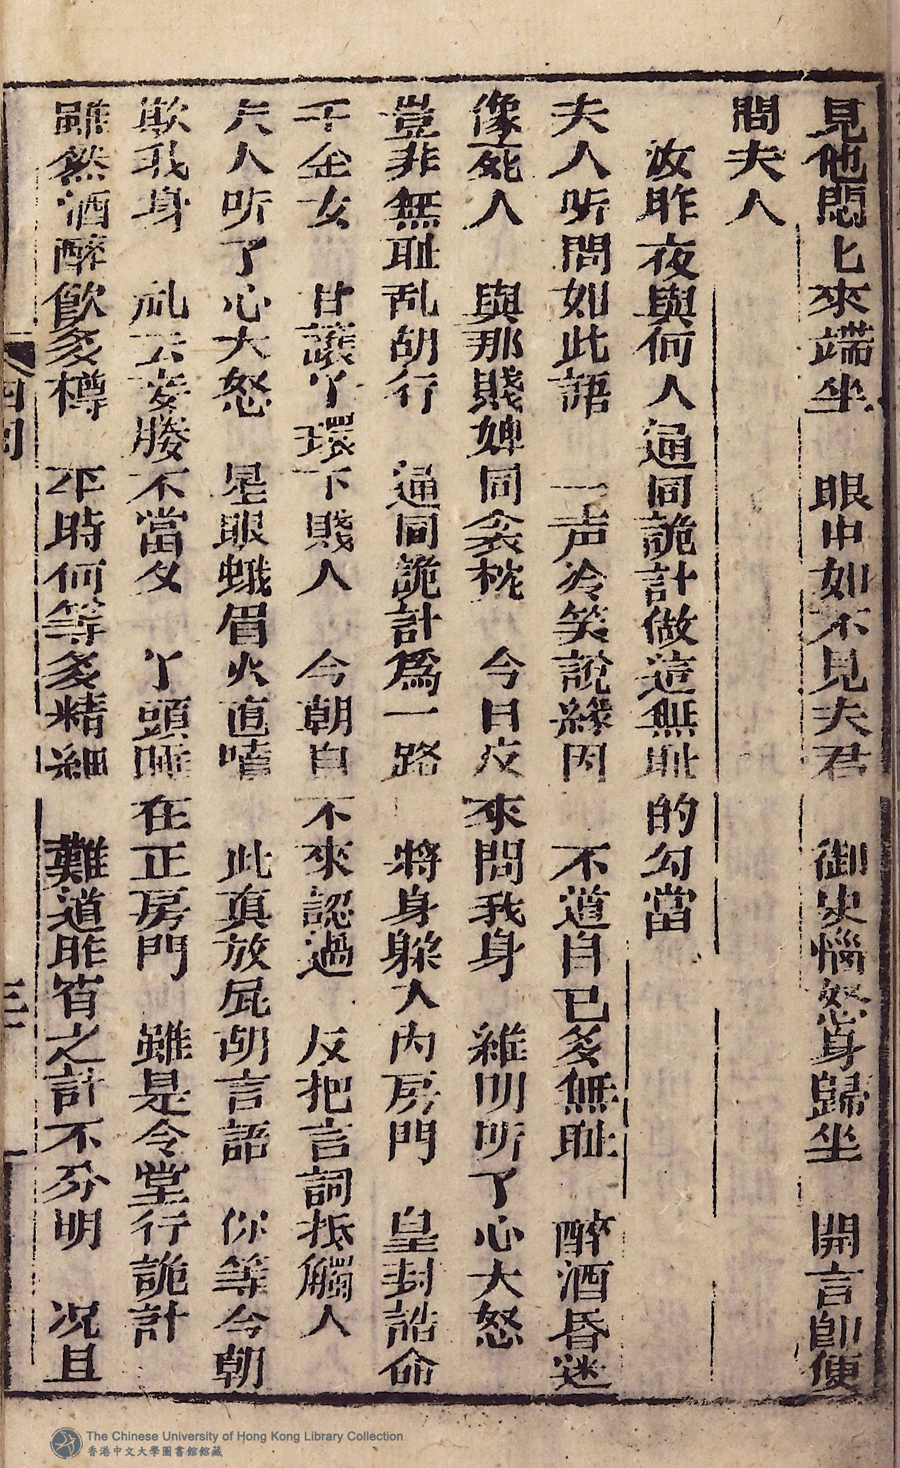 見他悶上來端坐　眼中如不見夫君　御史惱怒身歸坐　開言卽便
問夫人
汝昨夜與何人通同詭計做這無耻的勾當
夫人听問如此語　一声冷笑說緣因　不道自己多無耻　醉酒昏迷
像死人　與那賤婢同衾枕　今日反來問我身　維明听了心大怒
豈非無耻乱胡行　通同詭計爲一路　將身躱入內房門　皇封誥命
千金女　甘讓丫環下賤人　今朝自不來認過　反把言詞抵觸人
夫人听了心大怒　星眼蛾眉火直噴　此真放屁胡言語　你等今朝
欺我身　乱云妾媵不當夕　丫頭睡在正房門　雖是令堂行詭計
雖然酒醉飲多樽　不時何等多精細　難道昨宵之計不分明　況且
四囘
三十一
The Chinese University of Hong Kong Library Collection
香港中文大學圖書館館藏